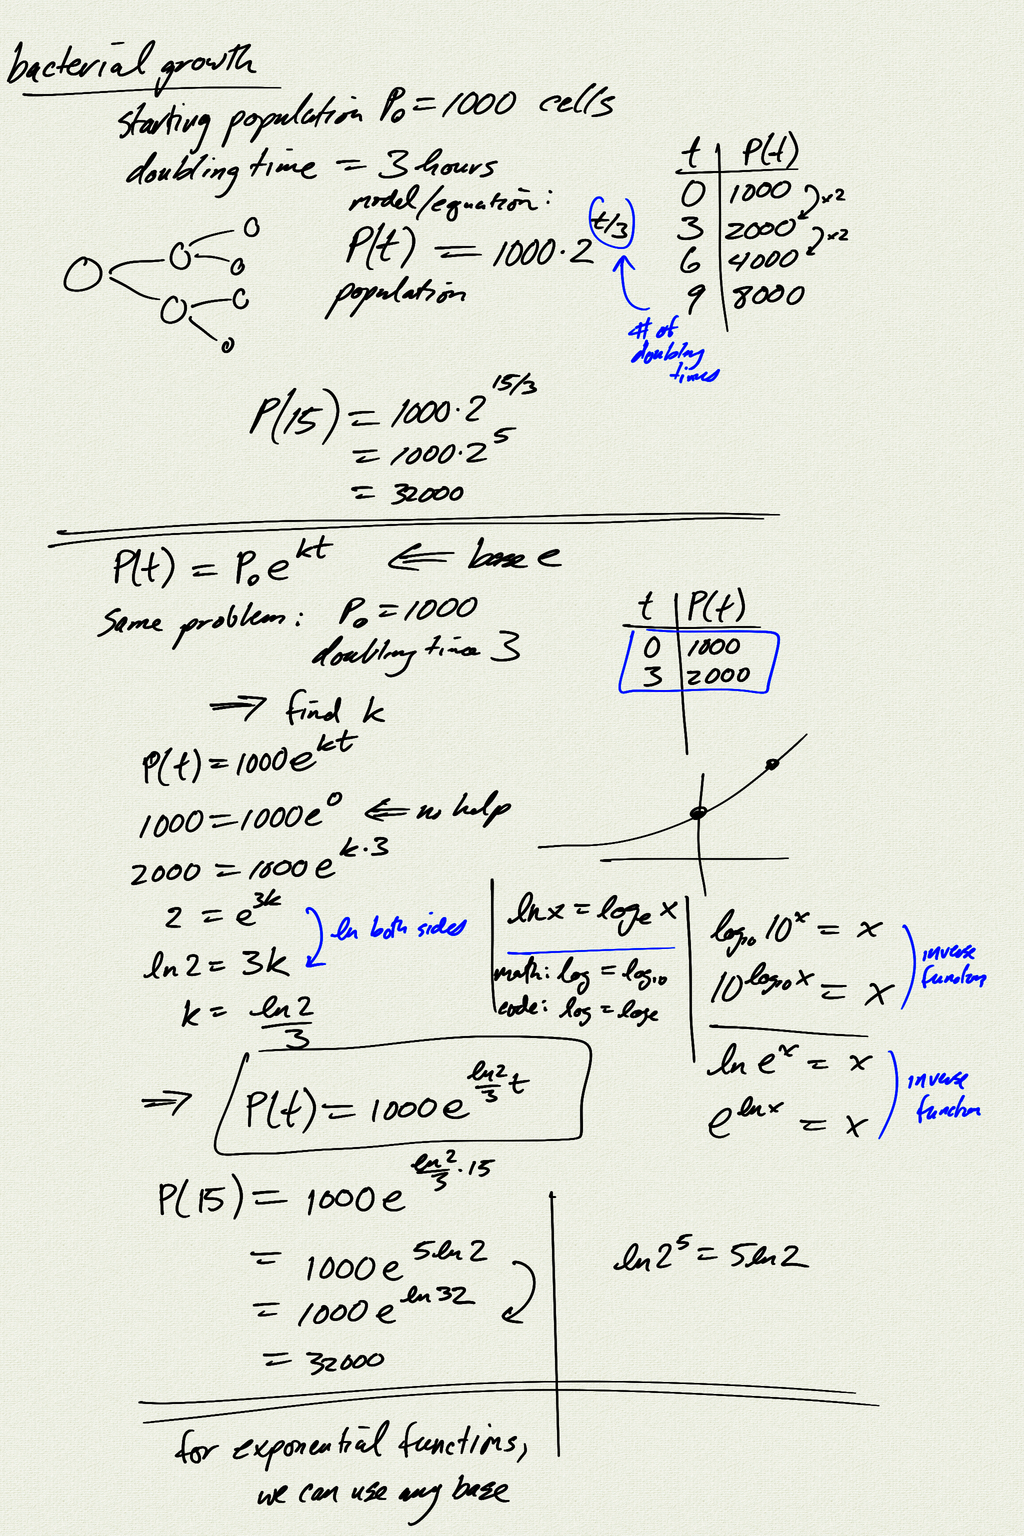 bacterial growth
starting population P₀ = 1000 cells
doubling time = 3 hours
model/equation:
P(t) = 1000·2^(t/3)
population
# of
doubling
times
t | P(t)
0 | 1000
3 | 2000
6 | 4000
9 | 8000
×2
×2
P(15) = 1000·2^(15/3)
= 1000·2^5
= 32000
P(t) = P₀e^(kt) ⇐ base e
Same problem: P₀ = 1000
doubling time 3
t | P(t)
0 | 1000
3 | 2000
⇒ find k
P(t) = 1000e^(kt)
1000 = 1000e^0 ⇐ no help
2000 = 1000e^(k·3)
2 = e^(3k)
ln both sides
ln2 = 3k
k = ln2/3
ln x = log_e x
math: log = log₁₀
code: log = log_e
log₁₀ 10^x = x
10^(log₁₀ x) = x
inverse
functions
ln e^x = x
e^(ln x) = x
inverse
function
⇒ P(t) = 1000e^((ln2/3)t)
P(15) = 1000e^((ln2/3)·15)
= 1000e^(5ln2)
= 1000e^(ln32)
= 32000
ln2^5 = 5ln2
for exponential functions,
we can use any base